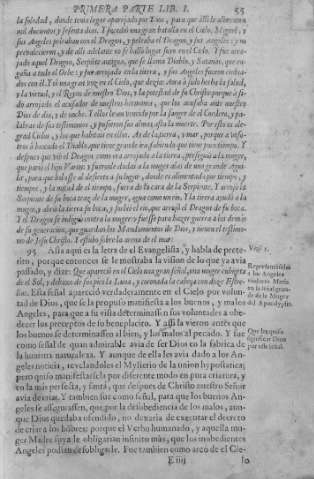 PRIMERA PARTE LIB. I. 55
la soledad, donde tenia lugar aparejado por Dios, para que allí la alimenten
mil ducientos y sesenta dias. I sucedió una gran batalla en el Cielo, Miguel, y
sus Angeles peleavan con el Dragon, y peleava el Dragon, y sus Angeles: y no
prevalecieron, y de allí adelante no se halló lugar suyo en el Cielo. I fue arro-
jado aquel Dragon, Serpiente antigua, que se llama Diablo, y Satanàs, que en-
gaña a todo el Orbe: y fue arrojado en la tierra, y sus Angeles fueron embia-
dos con él. I oì una gran voz en el Cielo, que dezia: Aora à sido hecha la salud,
y la virtud, y el Reyno de nuestro Dios, y la potestad de su Christo: porque à si-
do arrojado el acusador de nuestros hermanos, que los acusava ante nuestro
Dios de dia, y de noche. I ellos le an vencido por la sangre de el Cordero, y pa-
labras de sus testimonios, y pusieron sus almas asta la muerte. Por esto os ale-
grad Cielos, y los que habitais en ellos. Ai de la tierra, y mar, porque à vosо-
tros à baxado el Diablo, que tiene grande ira, sabiendo que tiene poco tiempo. Y
despues que viò el Dragon como era arrojado a la tierra, persiguiò a la muger,
que pariò el hijo Varon: y fueronle dadas a la muger alas de una grande Agui-
la, para que bolasse al desierto a su lugar, donde es alimentada por tiempo, y
tiempos, y la mitad de el tiempo, fuera de la cara de la Serpiente. Y arrojò la
Serpiente de su boca tras de la muger, agua como un rio. Y la tierra ayudò a la
muger, y abriò la tierra su boca, y sorbiò el rio, que arrojò el Dragon de su boca.
Y el Dragon se indignò contra la muger: y fuesse para hazer guerra a los demàs
de su generacion, que guardan los Mandamientos de Dios, y tienen el testimo-
nio de Jesu Christo. I estubo sobre la arena de el mar.
95 Asta aqui es la letra de el Evangelista, y habla de prete-
rito, porque entonces se le mostraba la vision de lo que ya avia
passado, y dize: Que apareciò en el Cielo una gran señal, una muger cubierta
de el Sol, y debaxo de sus pies la Luna, y coronada la cabeça con doze Estre-
llas. Esta señal apareciò verdaderamente en el Cielo por volun-
tad de Dios, que se la propuso manifiesta a los buenos, y malos
Angeles, para que a su vista determinassen sus voluntades a obe-
decer los preceptos de su beneplacito. Y assi la vieron antes que
los buenos se determinassen al bien, y los malos al pecado. Y fue
como señal de quan admirable avia de ser Dios en la fabrica de
la humana naturaleza. Y aunque de ella les avia dado a los An-
geles noticia, revelandoles el Mysterio de la union hypostatica;
pero quiso manifestarsela por diferente modo en pura criatura, y
en la mas perfecta, y santa, que despues de Christo nuestro Señor
avia de criar. Y tambien fue como señal, para que los buenos An-
geles se assegurassen, que por la desobediencia de los malos, aun-
que Dios quedaba ofendido, no dexaria de executar el decreto
de criar a los hõbres: porque el Verbo humanado, y aquella mu-
ger Madre suya le obligarian infinito mas, que los inobedientes
Angeles podian desobligarle. Fue tambien como arco de el Cie-
E iiij lo
Representósele
a los Angeles
de la Muger